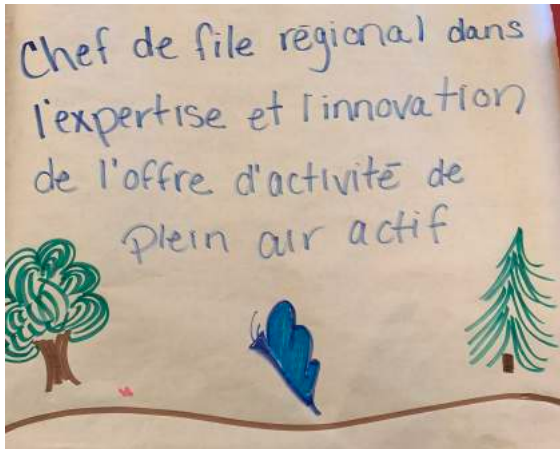 Chef de file régional dans
l'expertise et l'innovation
de l'offre d'activité de
plein air actif